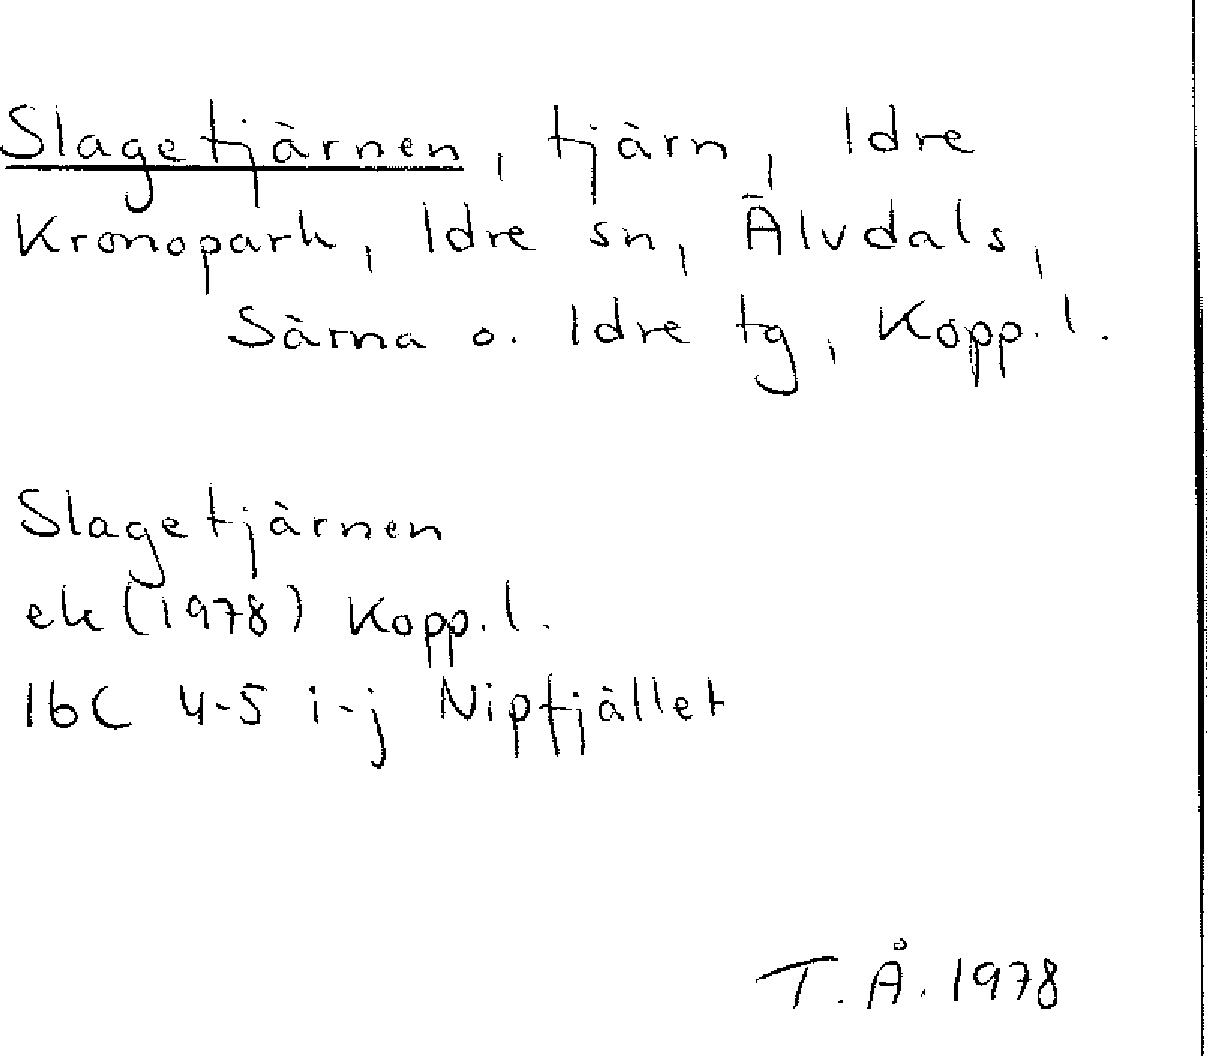 Slagetjärnen, tjärn, Idre
Kronopark, Idre sn, Älvdals,
Särna o. Idre tg, Kopp. l.
Slagetjärnen
ek (1978) Kopp. l.
16C 4-5 i-j Nipfjället
T. Å. 1978